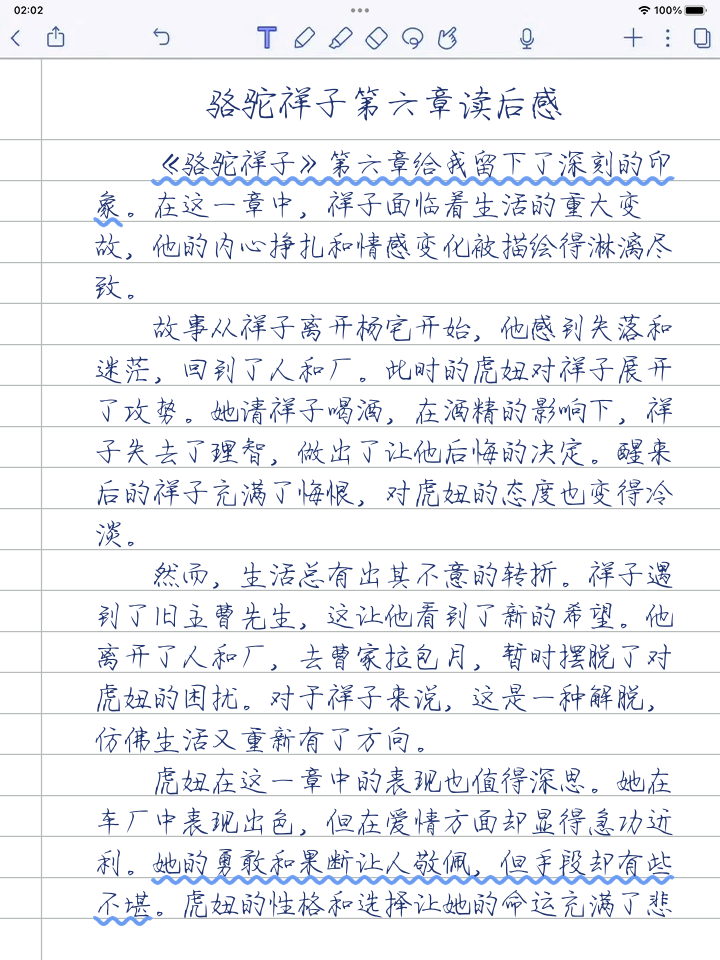 02:02
100%
骆驼祥子第六章读后感
《骆驼祥子》第六章给我留下了深刻的印
象。在这一章中，祥子面临着生活的重大变
故，他的内心挣扎和情感变化被描绘得淋漓尽
致。
故事从祥子离开杨宅开始，他感到失落和
迷茫，回到了人和厂。此时的虎妞对祥子展开
了攻势。她请祥子喝酒，在酒精的影响下，祥
子失去了理智，做出了让他后悔的决定。醒来
后的祥子充满了悔恨，对虎妞的态度也变得冷
淡。
然而，生活总有出其不意的转折。祥子遇
到了旧主曹先生，这让他看到了新的希望。他
离开了人和厂，去曹家拉包月，暂时摆脱了对
虎妞的困扰。对于祥子来说，这是一种解脱，
仿佛生活又重新有了方向。
虎妞在这一章中的表现也值得深思。她在
车厂中表现出色，但在爱情方面却显得急功近
利。她的勇敢和果断让人敬佩，但手段却有些
不堪。虎妞的性格和选择让她的命运充满了悲